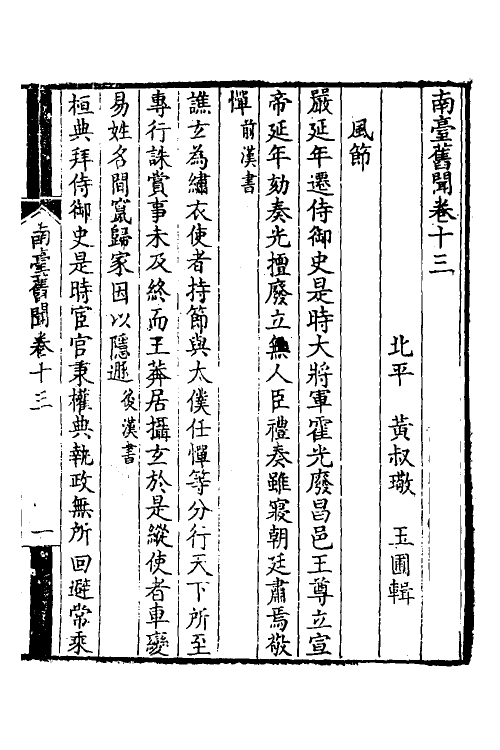 南臺舊聞卷十三
北平 黃叔璥 玉圃輯
風節
嚴延年遷侍御史是時大將軍霍光廢昌邑王尊立宣
帝延年劾奏光擅廢立無人臣禮奏雖寢朝廷肅焉敬
憚前漢書
譙玄為繡衣使者持節與太僕任惲等分行天下所至
專行誅賞事未及終而王莽居攝玄於是縱使者車變
易姓名間竄歸家因以隱遯後漢書
桓典拜侍御史是時宦官秉權典執政無所回避常乘
南臺舊聞卷十三 一